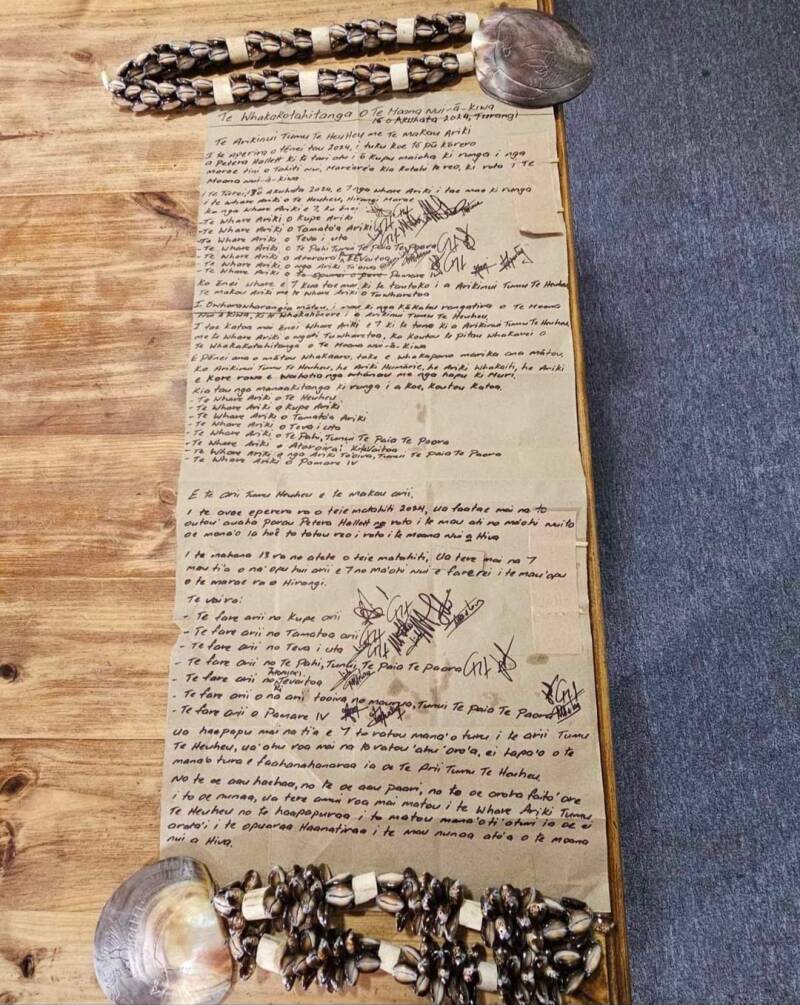 Te Whakakotahitanga O Te Moana Nui-ā-kiwa
18 o Akuhata 2024, Turangi
Te Arikinui Tumu Te Heuheu me Te Makau Ariki
I te aperira o tēnei tau 2024, i tuku koe tō pū kōrero
a Petera Hallett ki te tari atu i ō Kupu maioha ki runga i nga
marae tini o Tahiti Nui, Mare'are'a kia kotahi te reo, ki roto i Te
Moana nui-ā-kiwa
i te Tarei, 18 o Akuhata 2024, e 7 nga Whare Ariki i tae mao ki runga
i te whare Ariki o Te Heuheu, Hirangi Marae
Ko nga Whare Ariki e 7, ko Enei
- Te Whare Ariki o Kupe Ariki
- Te Whare Ariki o Tamato'a Ariki
- Te Whare Ariki o Teva i uta
- Te Whare Ariki o Te Pahi Tumui Te Paia Te Paora
- Te Whare Ariki o Vaitoa
- Te Whare Ariki o nga Ariki
- Te Whare Ariki o Pomare IV
Ko Enei Whare e 7 Kua tae mai, ki te tautoko i a Arikinui Tumu Te Heuheu
Te Makau Ariki me te Whare Ariki o Tuwharetoa
I mātou, i mau ki nga Kākahu rangatira o Te Moana
Nui-ā-kiwa, ki te Whakahōnore i a Arikinui Tumu Te Heuheu.
I tae Katoa mai Enei Whare Ariki e 7 ki te tono ki a Arikinui Tumu Te Heuheu,
me te Whare Ariki o ngati Tuwharetoa, ko Koutou te pitau Whakarei o
Te Whakakotahitanga o Te Moana Nui-ā-Kiwa
E Pēnei ana o mātou Whakaaro, take e whakapono marika ana mātou,
Ko Arikinui Tumu Te Heuheu, he Ariki Humārie, he Ariki Whakaiti, he Ariki
e Kore rawa e Waihotia nga whānau me nga hapu ki Muri.
Kia tau nga manaakitanga ki runga i a Koe, Koutou Katoa.
- Te Whare Ariki o Te Heuheu
- Te Whare Ariki o Kupe Ariki
- Te Whare Ariki o Tamato'a Ariki
- Te Whare Ariki o Teva i uta
- Te Whare Ariki o Te Pahi, Tumui Te Paia Te Paora
- Te Whare Ariki o Vaitoa
- Te Whare Ariki o nga Ariki To'oiva, Tumui Te Paia Te Paora
- Te Whare Ariki o Pomare IV
E te arii Tumu Heuheu e te makau arii.
I te avae eperera ra o teie matahiti 2024, ua faatae mai na to
outou auaha parau Petera Hallett na roto i te mau ati no ma'ohi nui to
oe mana'o ia hoê to tatou reo i roto i te Moana Nui a Hiva
I te mahana 18 ra no atete o teie matahiti, ua tere mai na 7
mau ti'a o na'apu hui arii e 7 no Ma'ohi Nui e farerei i te mau'apu
o te marae ra o Hirangi.
Te vaira:
- Te fare arii no Kupe arii
- Te fare arii no Tamatoa arii
- Te fare arii no Teva i uta
- Te fare arii no Te Pahi, Tumui, Te Paia Te Paora
- Te fare arii no Tevaitoa
- Te fare arii o na arii tooiva no maupiti, Tumui Te Paia Te Paora
- Te fare arii o Pomare IV
ua haapapu mai na ti'a e 7 to ratou mana'o turu i te arii Tumu
Te Heuheu, ua'atu roa mai na to ratou 'ahu 'oro'a, ei tapa'o o te
mana'o tura e faahanahanaraa ia oe Te Arii Tumu Te Heuheu.
No te oe aau haehaa, no te oe aau paari, no to oe aroha faito' ore
i to oe nunaa, ua tere amui roa mai matou i te Whare Ariki Tumu
Te Heuheu no te haapapuraa i to matou mana'o ti'aturi ia oe ei
arata'i i te opuaraa Haanatiraa i te mau nunaa ato'a o te moana
nui a Hiva.